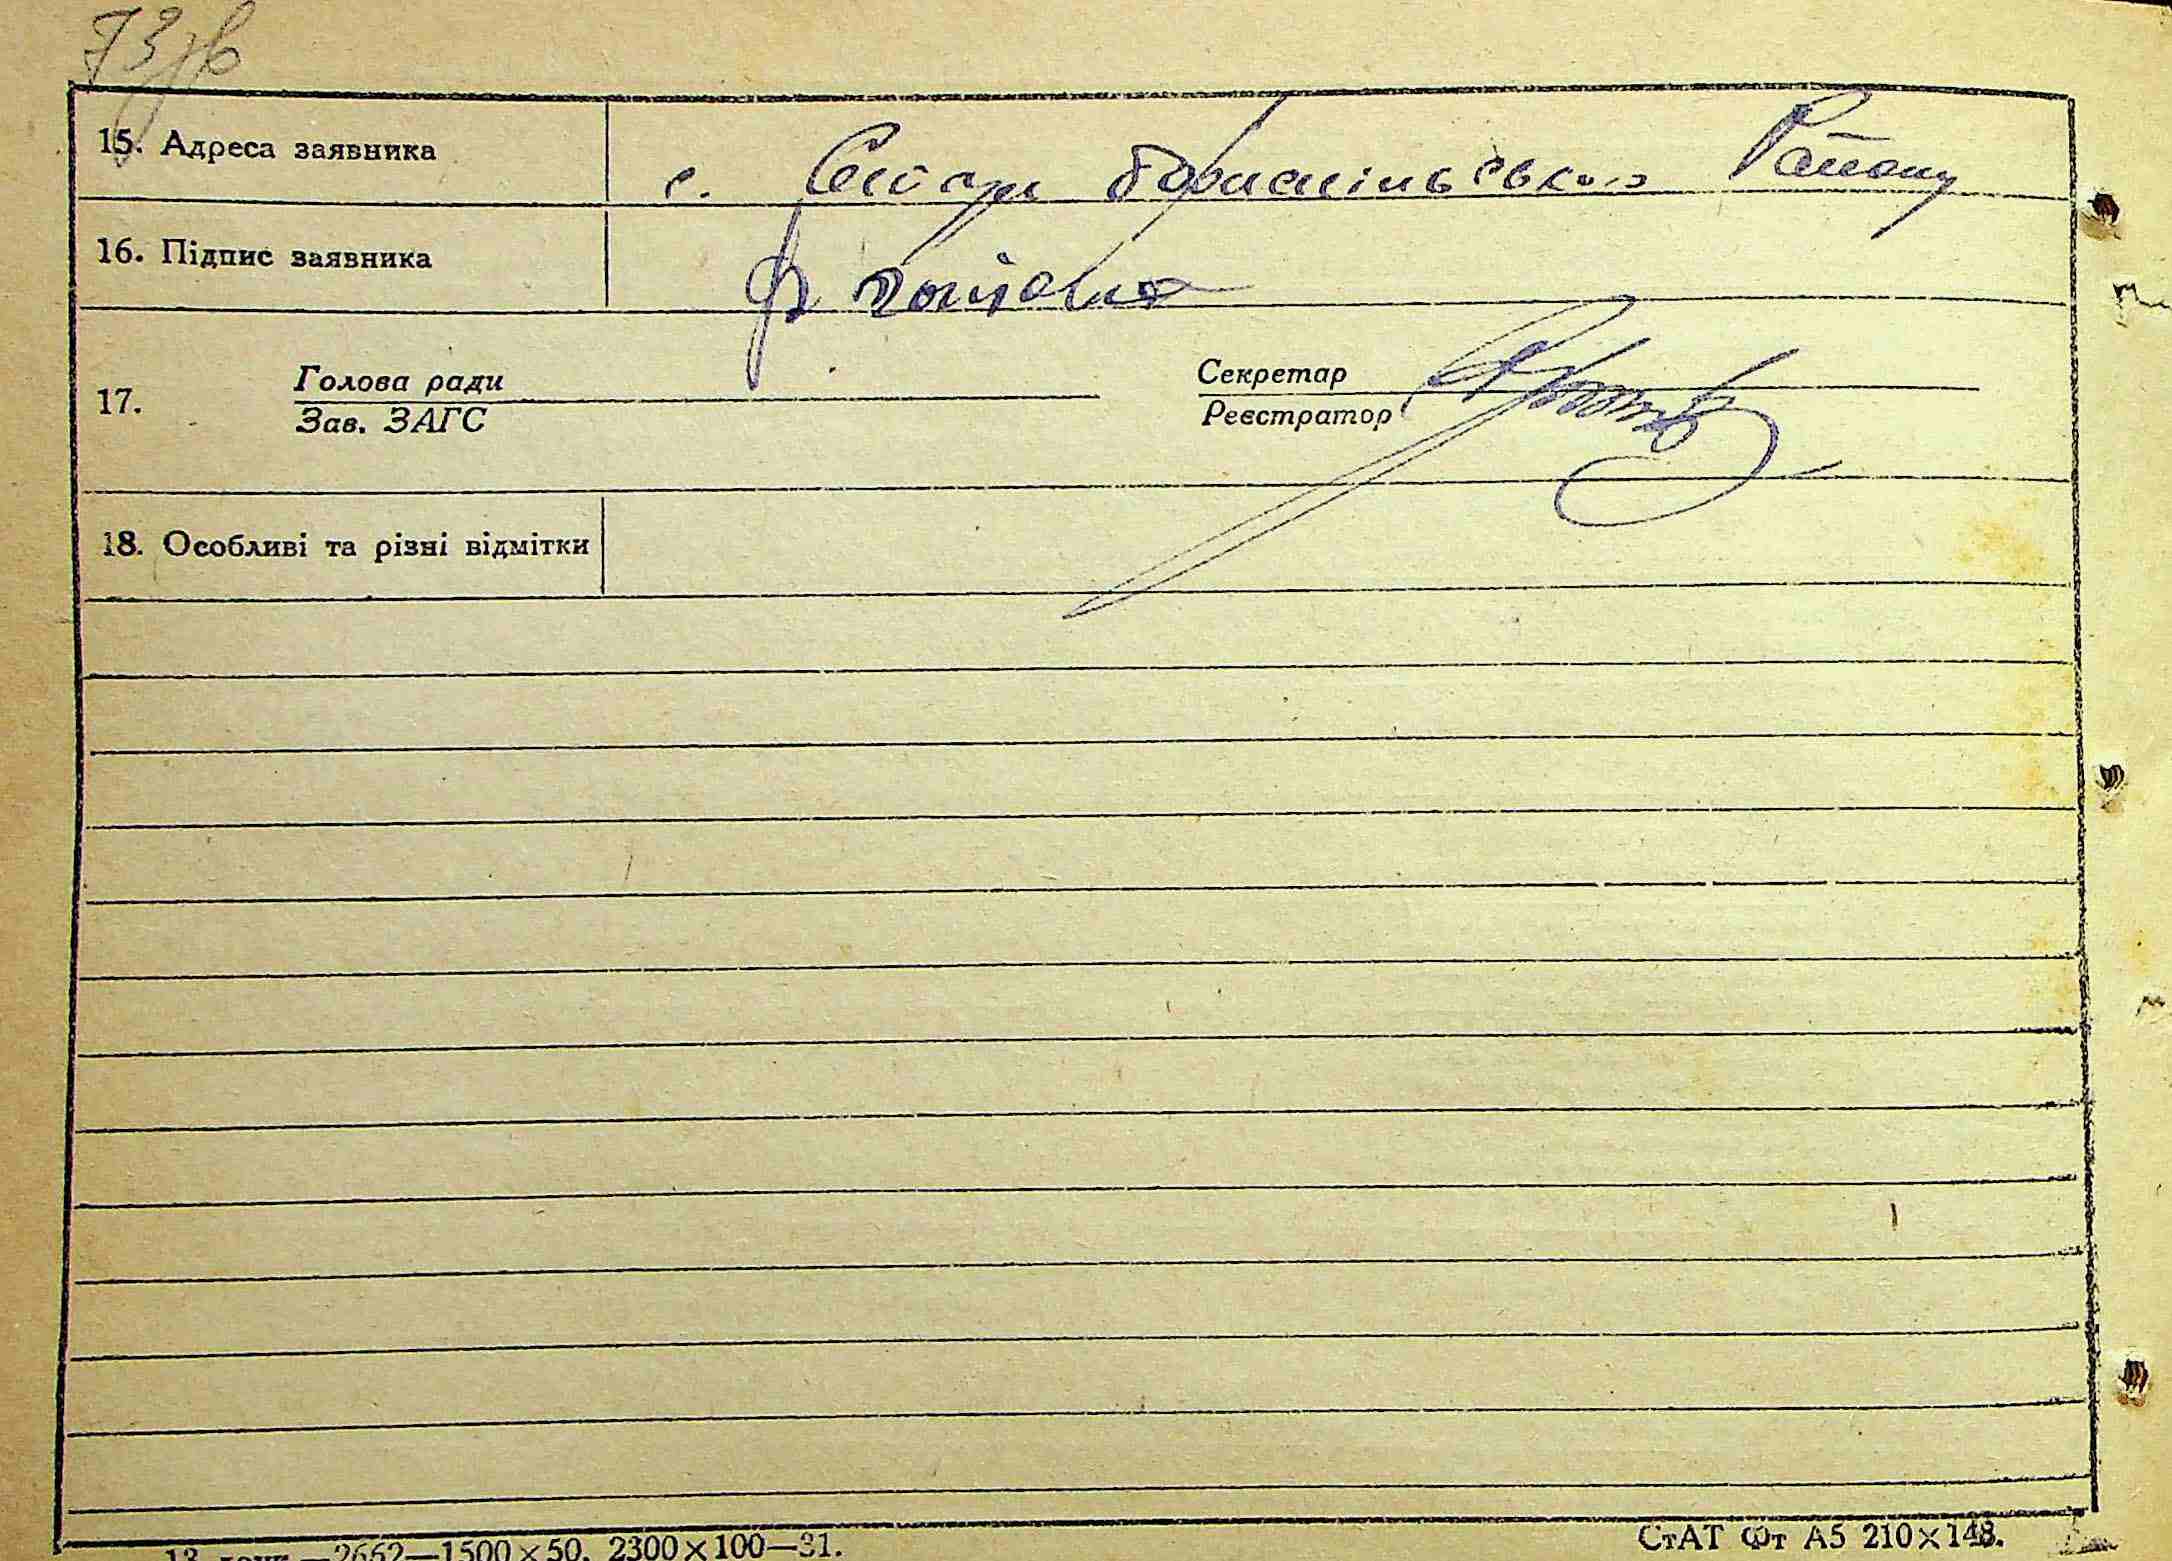 73 зв
15. Адреса заявника с. Бориспільського Району
16. Підпис заявника
17. Голова ради
Зав. ЗАГС
Секретар
Реєстратор
18. Особливі та різні відмітки
—2662—1500×50, 2300×100—31.
СтАТ Фт А5 210×148.